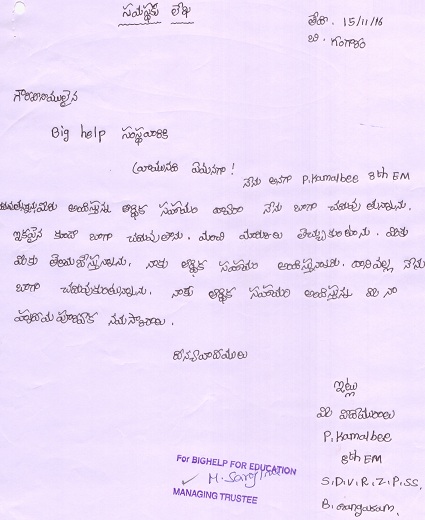 సంస్థకు లేఖ
తేది. 15/11/16
బి. గంగారం
గౌరవనీయులైన
Big help సంస్థవారికి
వ్రాయునది ఏమనగా !
నేను అనగా P.Kamalbee 8th EM
అందిస్తున్న ఆర్థిక సహాయం ద్వారా నేను బాగా చదువుతున్నాను.
ఇకపైన కూడా బాగా చదువుతాను. మంచి మార్కులు తెచ్చుకుంటాను. మీకు
మీకు తెలియచేస్తున్నాను. నాకు ఆర్థిక సహాయం అందిస్తున్నారు. దానివల్ల నేను
బాగా చదువుకుంటున్నాను. నాకు ఆర్థిక సహాయం అందిస్తున్న మీ నా
హృదయపూర్వక నమస్కారాలు.
ధన్యవాదములు
ఇట్లు
మీ విద్యార్థురాలు
P.Kamalbee
8th EM
S.D.V.R.Z.P.SS.
B.Gangaram.
For BIGHELP FOR EDUCATION
MANAGING TRUSTEE